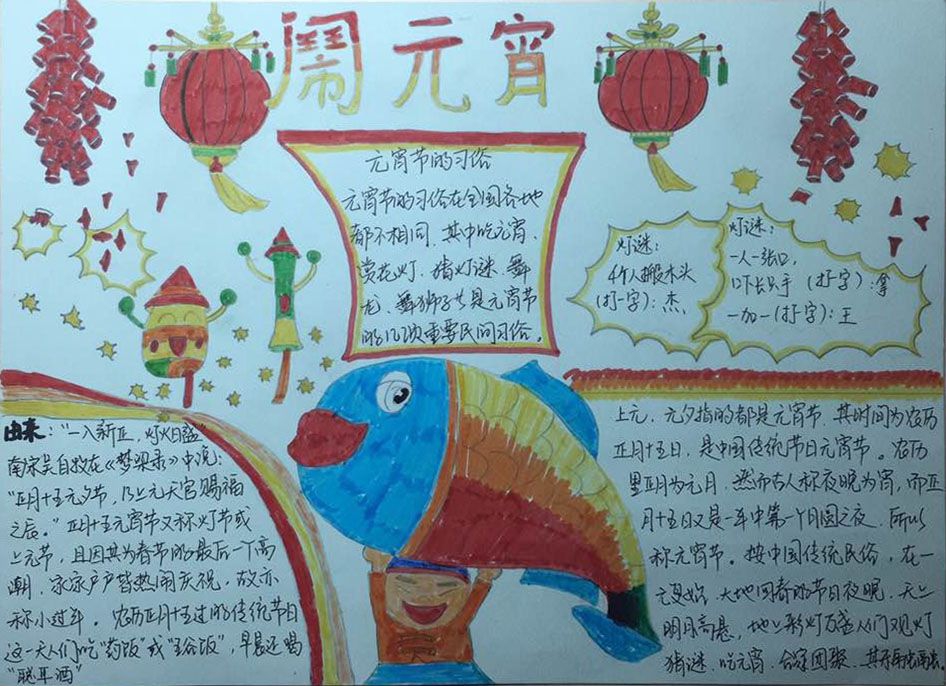 闹元宵
元宵节的习俗
元宵节的习俗在全国各地
都不相同，其中吃元宵、
赏花灯、猜灯谜、舞
龙、舞狮子等是元宵节
的几项重要民间习俗。
灯谜：
4个人搬木头
(打一字)：杰
灯谜：
一人一张口，
口下长只手 (打一字)：拿
一加一(打一字)：王
由来："一入新正，灯火日盛"
南宋吴自牧在《梦梁录》中说：
"正月十五元夕节，乃上元天官赐福
之辰。"正月十五元宵节又称灯节或
上元节，且因其为春节的最后一个高
潮，家家户户皆热闹庆祝，故亦
称小过年。农历正月十五过的传统节日
这一天人们吃"药饭"或"五谷饭"，早晨还喝
"聪耳酒"
上元、元夕指的都是元宵节，其时间为农历
正月十五日，是中国传统节日元宵节。农历
里正月为元月，然而古人称夜晚为宵，而正
月十五日又是一年中第一个月圆之夜，所以
称元宵节。按中国传统民俗，在一
元复始，大地回春的节日夜晚，天上
明月高悬，地上彩灯万盏人们观灯
猜谜、吃元宵、合家团聚、其乐